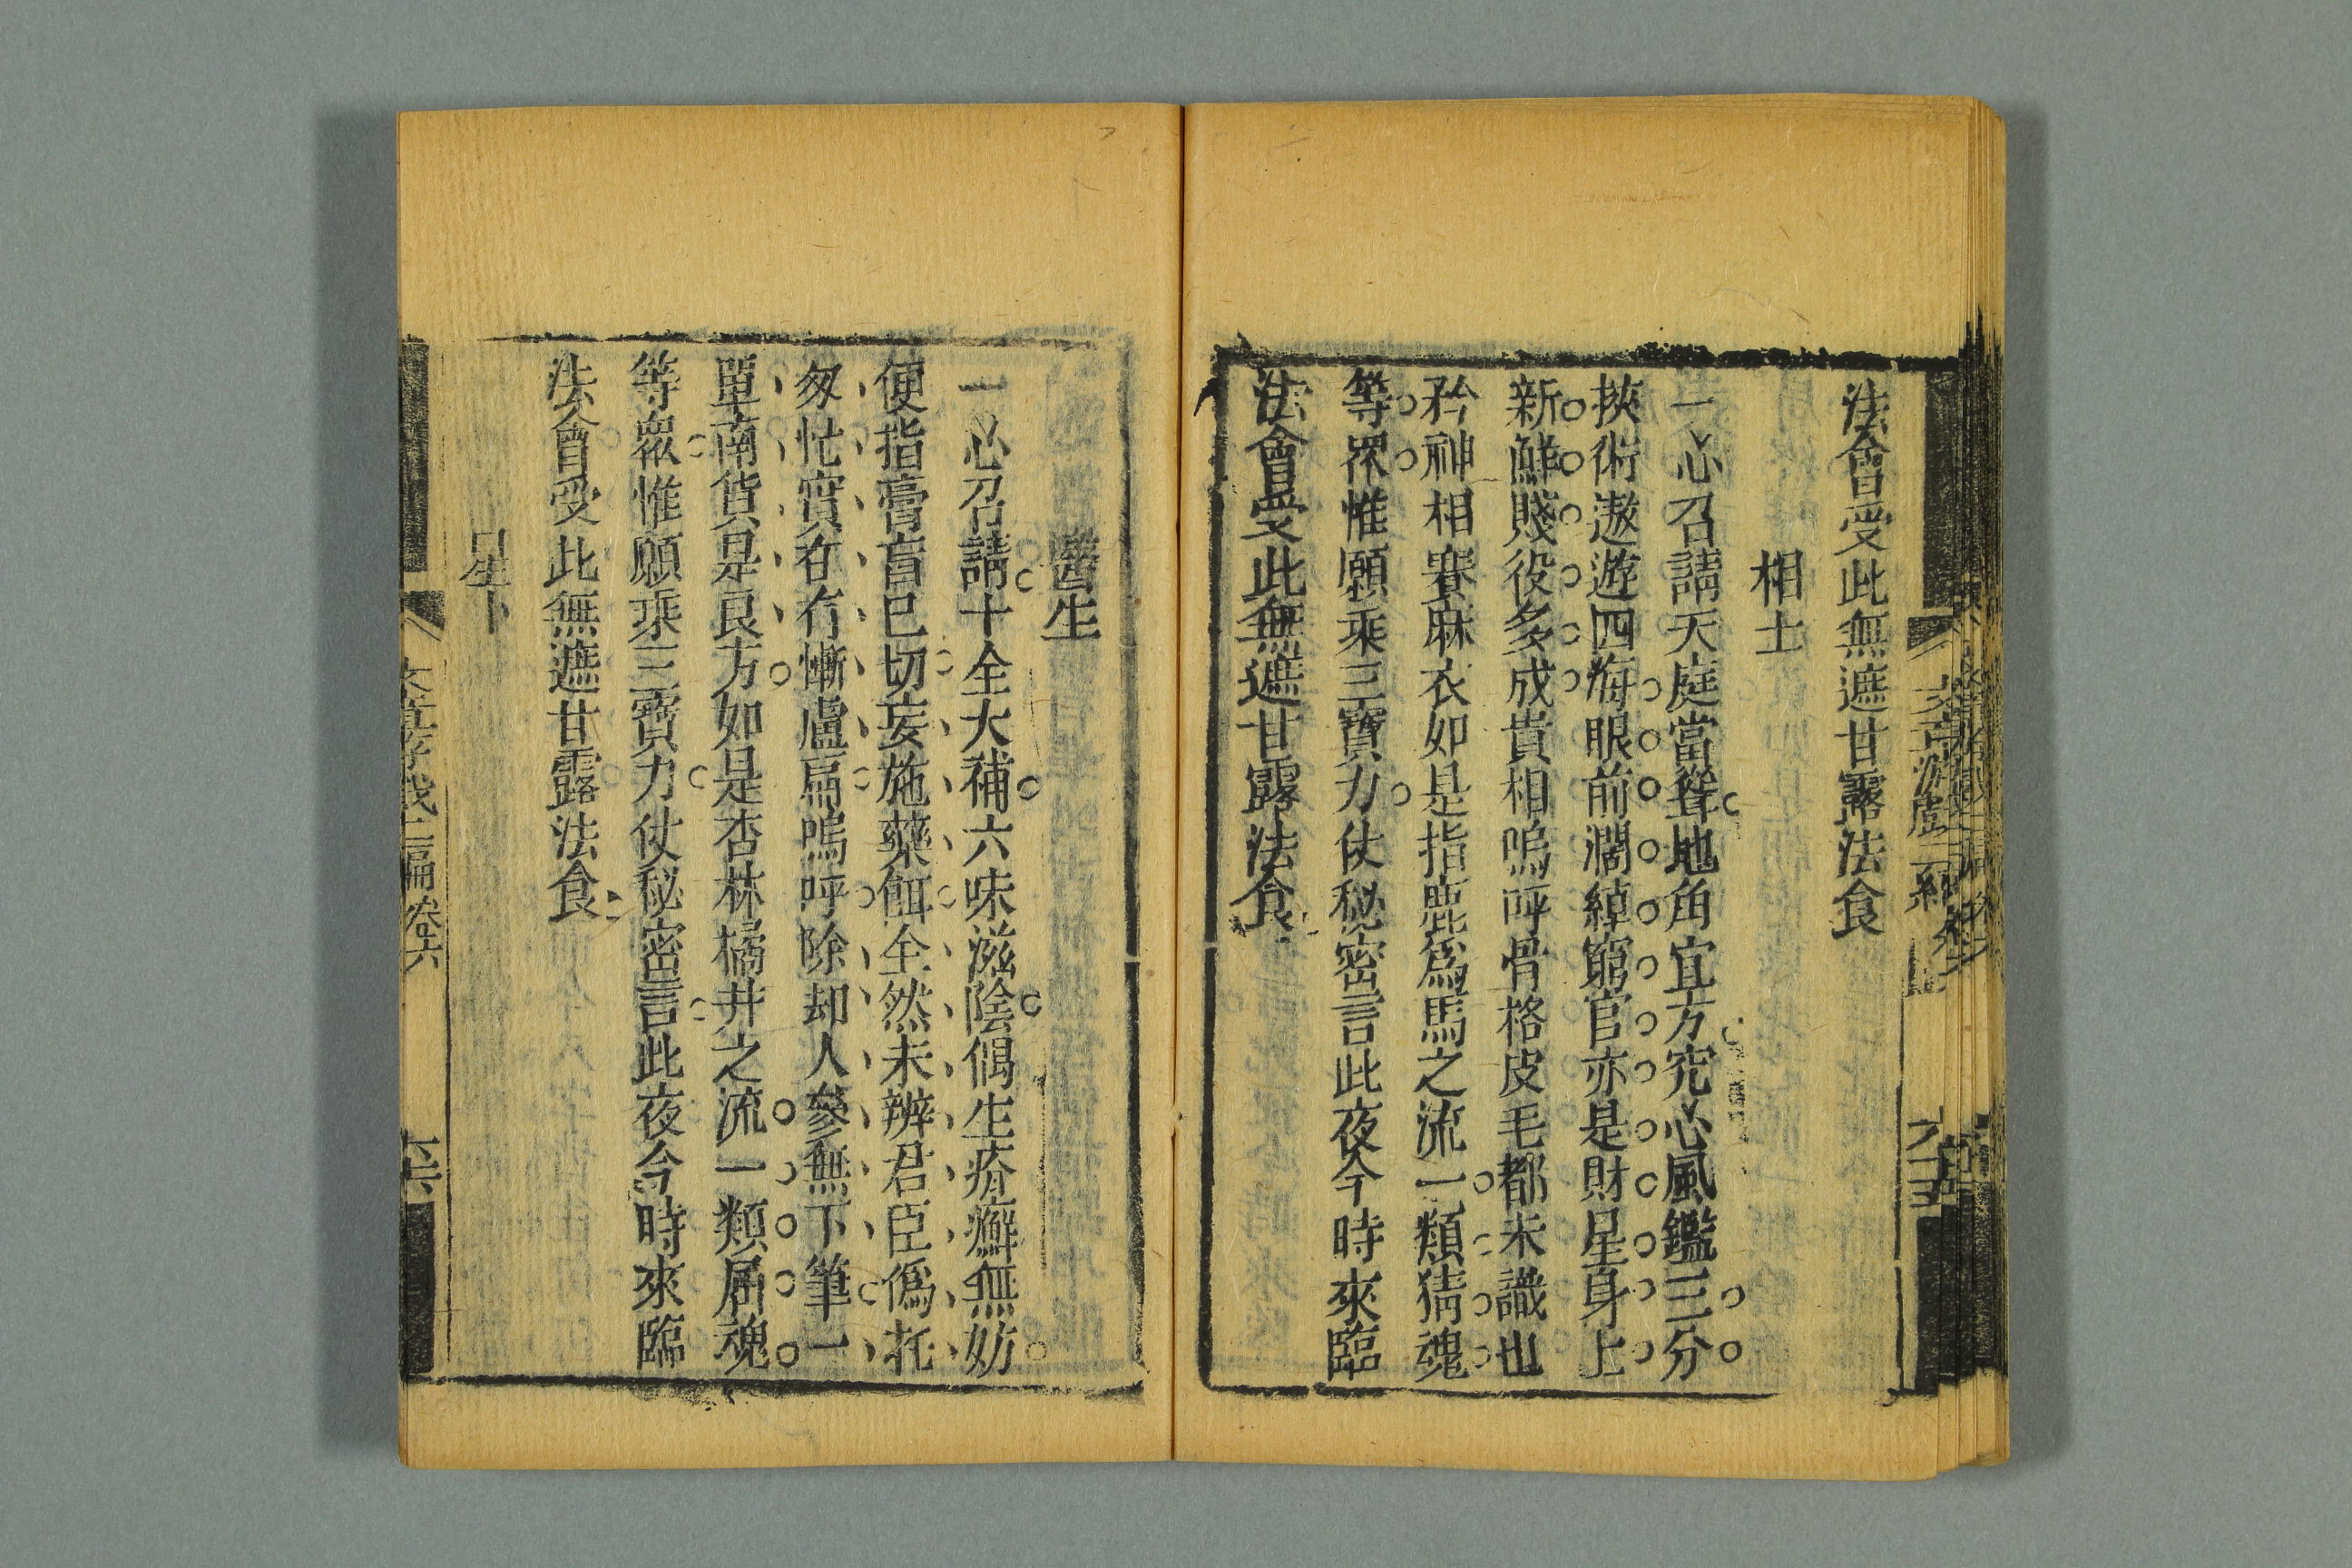 法會受此無遮甘露法食
相士
一心召請天庭當聳地角宜方究心風鑑三分
挾術遨遊四海眼前濶綽窮官亦是財星身上
新鮮賤役多成貴相嗚呼骨格皮毛都未識也
矜神相賽麻衣如是指鹿爲馬之流一類猜魂
等衆惟願乘三寶力仗秘密言此夜今時來臨
法會受此無遮甘露法食
醫生
一心召請十全大補六味滋陰偶生疥癬無妨
便指膏肓已切妄施藥餌全然未辨君臣僞托
匆忙實在冇慚盧扁嗚呼除却人參無下筆一
單南貨是良方如是杏林橘井之流一類屈魂
等衆惟願乘三寶力仗秘密言此夜今時來臨
法會受此無遮甘露法食
星卜
文章游戲二編卷六